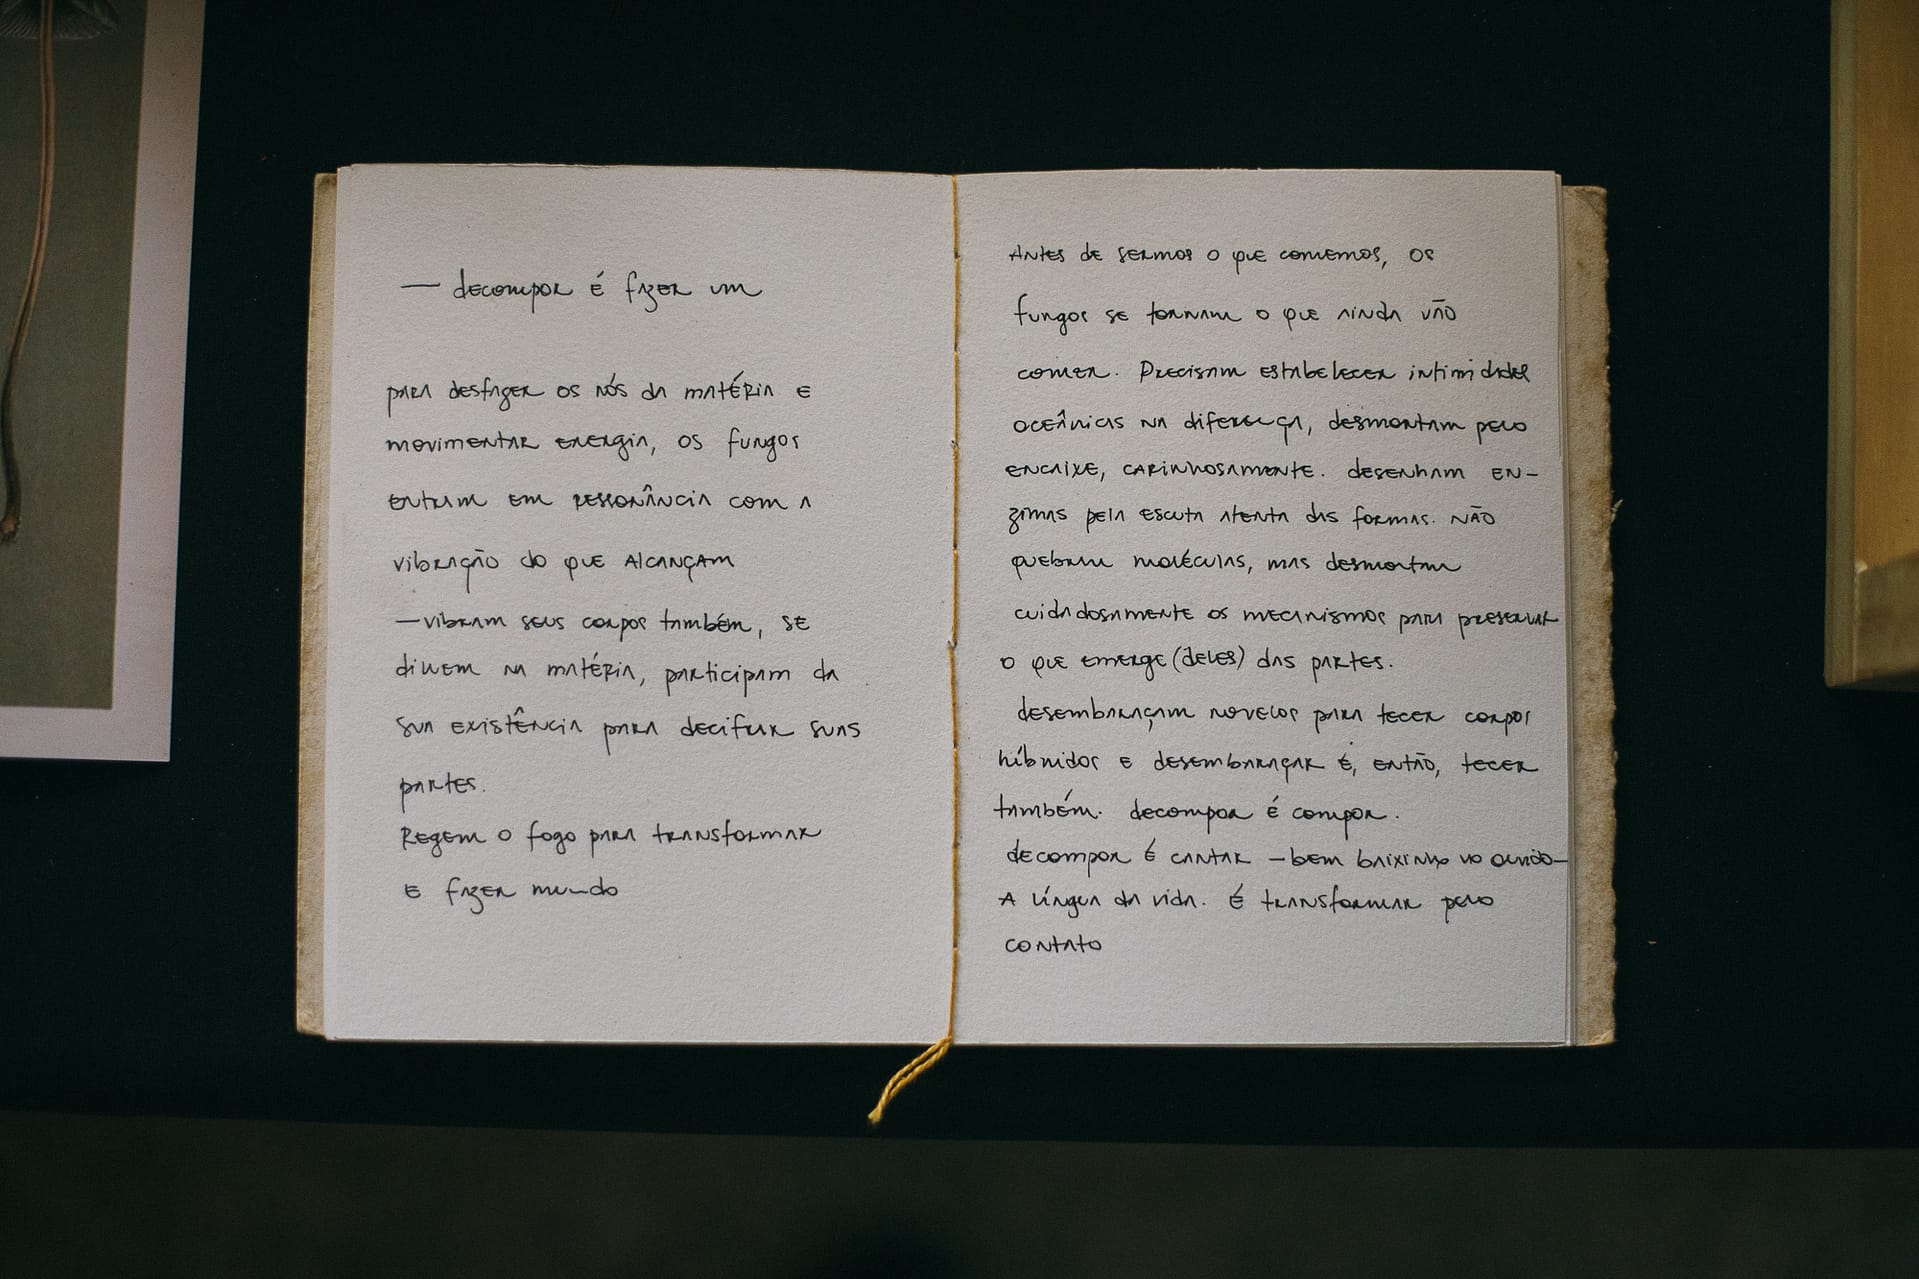 — decompor é fazer um
para desfazer os nós da matéria e
movimentar energia, os fungos
entram em ressonância com a
vibração do que alcançam
— vibram seus corpos também, se
diluem na matéria, participam da
sua existência para decifrar suas
partes.
Regem o fogo para transformar
e fazer mundo
Antes de sermos o que comemos, os
fungos se tornam o que ainda vão
comer. Precisam estabelecer intimidades
oceânicas na diferença, desmontam pelo
encaixe, carinhosamente. desenham en-
zimas pela escuta atenta das formas. Não
quebram moléculas, mas desmontam
cuidadosamente os mecanismos para preservar
o que emerge (deles) das partes.
desembaraçam novelos para tecer corpos
híbridos e desembaraçar é, então, tecer
também. decompor é compor.
decompor é cantar — bem baixinho no ouvido —
A língua da vida. É transformar pelo
contato